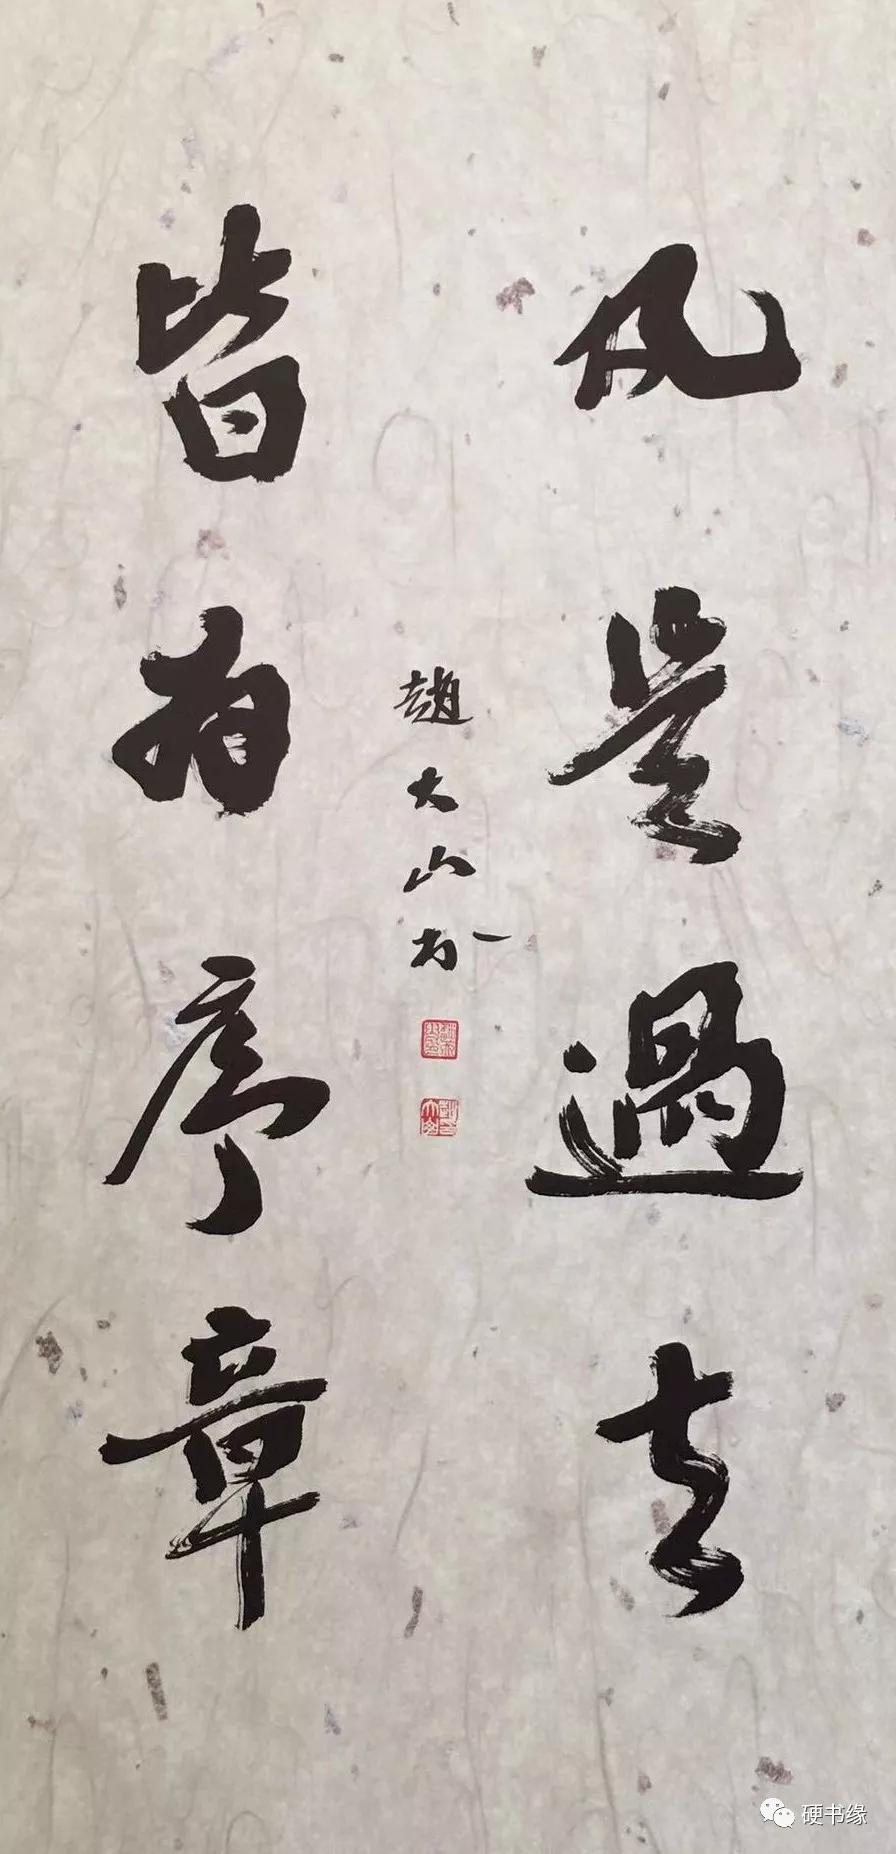 凡是過去
皆為序章
趙大山
硬书缘